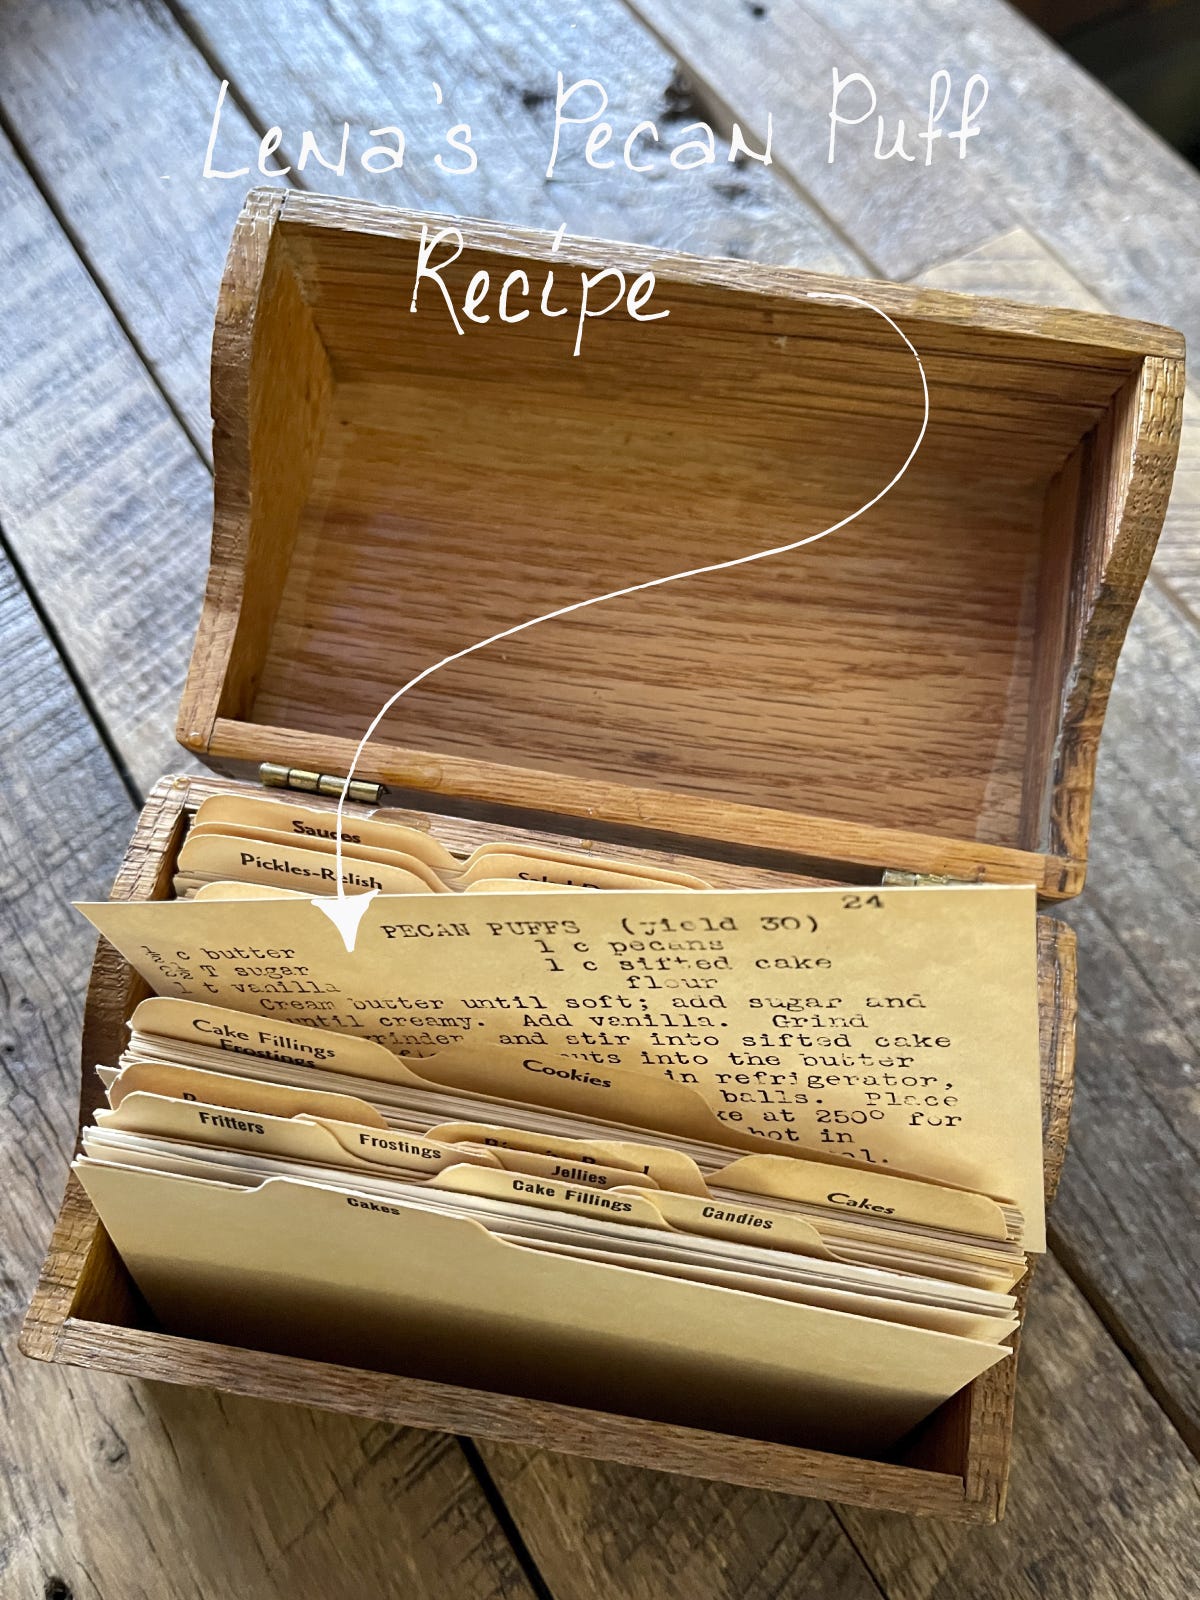 Lena's Pecan Puff
Recipe
Sauces
Pickles-Relish
Salad D
24
PECAN PUFFS (yield 30)
½ c butter
1 c pecans
2½ T sugar
1 c sifted cake
1 t vanilla
flour
Cream butter until soft; add sugar and
until creamy. Add vanilla. Grind
grinder and stir into sifted cake
into the butter
in refrigerator,
balls. Place
at 250° for
hot in
Cake Fillings
Frostings
Cookies
Fritters
Frostings
Jellies
Cakes
Cake Fillings
Candies
Cakes